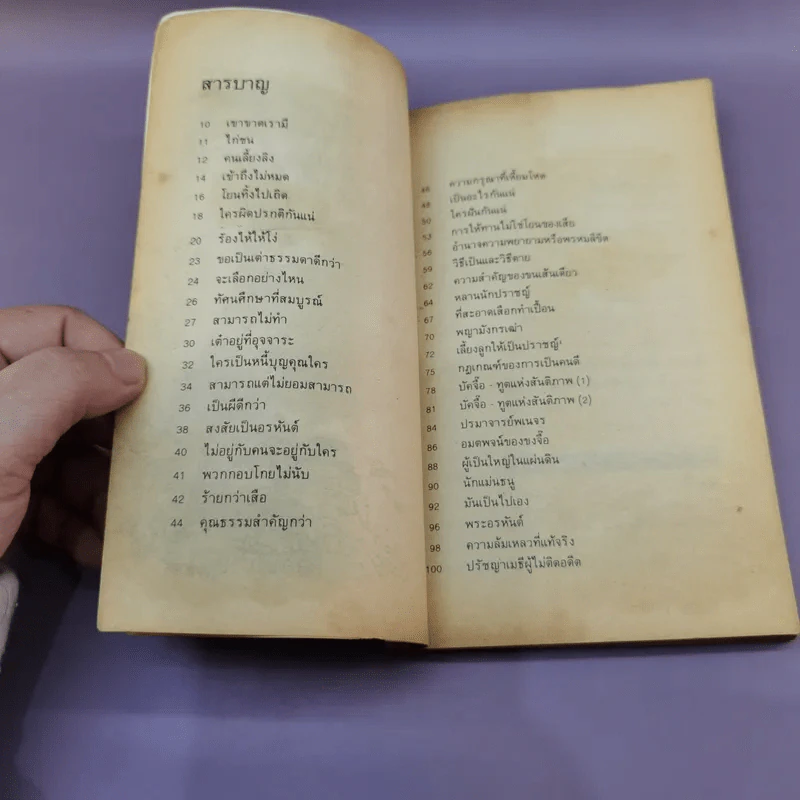 สารบาญ
10 เขาขาดเรามี
11 ไก่ชน
12 คนเลี้ยงลิง
14 เข้าถึงไม่หมด
16 โยนทิ้งไปเถิด
18 ใครผิดปรกติกันแน่
20 ร้องไห้ให้โง่
23 ขอเป็นเต่าธรรมดาดีกว่า
24 จะเลือกอย่างไหน
26 ทัศนศึกษาที่สมบูรณ์
27 สามารถไม่ทำ
30 เต๋าอยู่ที่อุจจาระ
32 ใครเป็นหนี้บุญคุณใคร
34 สามารถแต่ไม่ยอมสามารถ
36 เป็นผีดีกว่า
38 สงสัยเป็นอรหันต์
40 ไม่อยู่กับคนจะอยู่กับใคร
41 พวกกอบโกยไม่นับ
42 ร้ายกว่าเสือ
44 คุณธรรมสำคัญกว่า
46 ความกรุณาที่เหี้ยมโหด
48 เป็นอะไรกันแน่
50 ใครฝันกันแน่
53 การให้ทานไม่ใช่โยนของเสีย
56 อำนาจความพยายามหรือพรหมลิขิต
59 วิธีเป็นและวิธีตาย
62 ความสำคัญของขนเส้นเดียว
64 หลานนักปราชญ์
67 ที่สะอาดเลือกทำเปื้อน
70 พญามังกรเฒ่า
72 เลี้ยงลูกให้เป็นปราชญ์
75 กฎเกณฑ์ของการเป็นคนดี
78 บัคจื้อ - ทูตแห่งสันติภาพ (1)
81 บัคจื้อ - ทูตแห่งสันติภาพ (2)
84 ปรมาจารย์พเนจร
86 อมตพจน์ของขงจื๊อ
88 ผู้เป็นใหญ่ในแผ่นดิน
90 นักแม่นธนู
92 มันเป็นไปเอง
96 พระอรหันต์
98 ความล้มเหลวที่แท้จริง
100 ปรัชญาเมธีผู้ไม่ติดอดีต